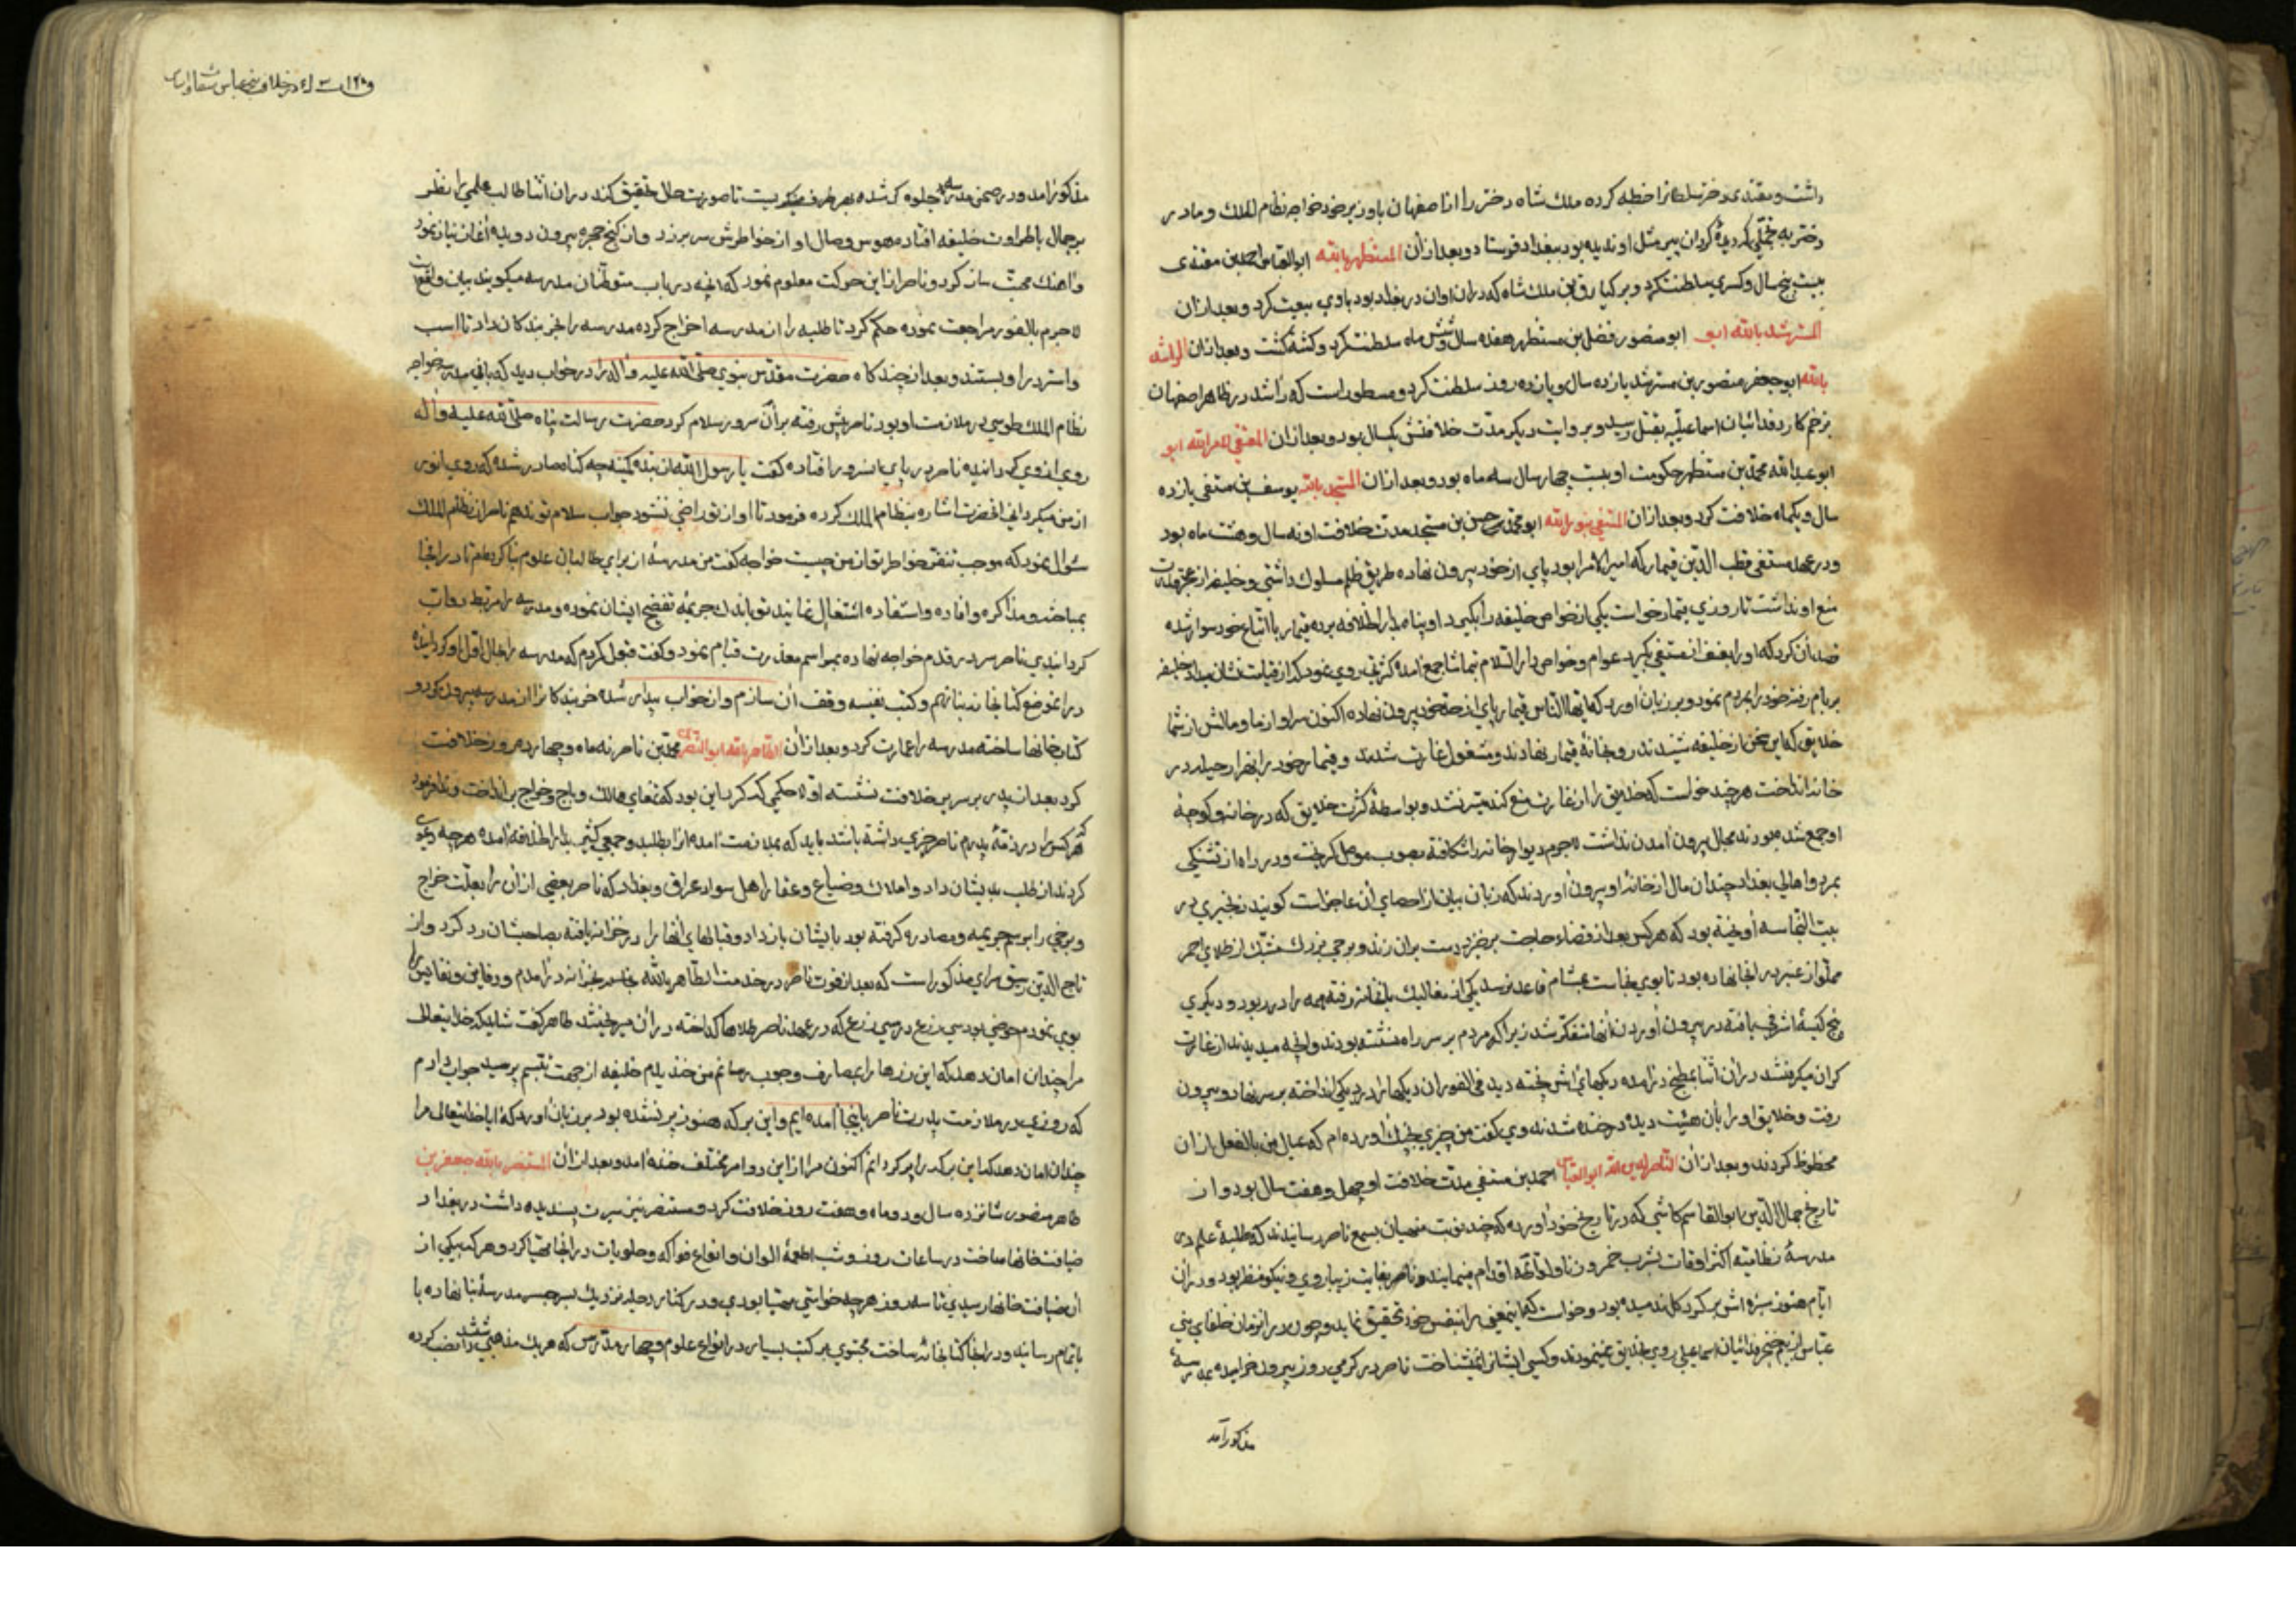 داشت و مقتدی دختر سلطانرا خطبه کرده ملک شاه دختر را از اصفهان با وزیر خود خواجه نظام الملک و مادر
دختر به تجملی که دیدۀ کردان پیر مثل او ندیده بود ببغداد فرستاد و بعد از آن المستظهر بالله ابو العباس احمد بن مقتدی
بیست پنج سال و کسری سلطنت کرد و برکیارق بن ملک شاه که دران اوان در بغداد بود باوی بیعت کرد و بعد ازان
المسترشد بالله ابو ابو منصور فضل بن مستظهر هفده سال و شش ماه سلطنت کرد و کشته کشت و بعد ازان الراشد
بالله ابو جعفر منصور بن مسترشد یازده سال و یازده روز سلطنت کرد و مسطور است که راشد در ظاهر اصفهان
بزخم کارد فدائیان اسماعیلیه بقتل رسید و بروایت دیکر مدت خلافتش یکسال بود و بعد ازان المقتفی لامر الله ابو
ابو عبد الله محمد بن مستظهر حکومت او بیست چهار سال سه ماه بود و بعد ازان المستنجد بالله یوسف بن مقتفی یازده
سال و یکماه خلافت کرد و بعد ازان المستضی بنور الله ابو محمد حسن بن مستنجد مدت خلافت او نه سال و هشت ماه بود
و در عهد مستضی قطب الدین قیماز که امیر الامرا بود پای از خود بیرون نهاده طریق ظلم مسلوک داشتی و خلیفه از
منع او نداشت تا روزی قیماز خواست یکی از خواص خلیفه را بکیرد او پناه بدار الخلافه برده قیماز با اتباع خود سوار شده
قصد آن کرد که او را بعنف از مستضی بکیرد عوام و خواص دار السلام بتماشا جمع آمده کثرتی روی نمود که از قیامت نشان میداد خلیفه
بر بام رفته خود را بمردم نمود و بر زبان آورد که ایها الناس قیماز پای از حد خود بیرون نهاده اکنون سر او از ما و مالش از شما
خلایق که این سخن از خلیفه شنیدند رو بخانۀ قیماز نهادند و مشغول غارت شدند و قیماز خود را بهزار حیله در
خانه انداخت هر چند خواست که خلایق را از غارت منع کند میسر نشد و بواسطۀ کثرت خلایق که در خانه و کوچۀ
او جمع شده بودند مجال بیرون آمدن نداشت لاجرم دیوار خانه را شکافته بصوب موصل کریخت و در راه از تشنکی
بمرد و اهالی بغداد چندان مال از خانۀ او بیرون آوردند که زبان بیان از احصای آن عاجز است کویند زنجیری در
بیت النجاسه آویخته بود که هر کس بعد از قضاء حاجت برخیزد دست بران زند و برجی بزرک مشبک از طلای احمر
مملو از عنبر در انجا نهاده بود تا بوی نجاست بمشام قاعد نرسد یکی از مفالیک بانخانه رفته همه را در ربود و دیکری
پنج کیسۀ اشرفی یافته در بیرون آوردن آنها متفکر شد زیرا که مردم بر سر راه نشسته بودند و انچه میدیدند از غارت
کران میکرفتند در آن اثنا بمطبخ در آمده دیکهای آش پخته دید فی الفور آن دیکها را در دیکی انداخته بر سر نهاد و بیرون
رفت و خلایق او را بآن هیئت دیده در خنده شدند وی کفت من چیزی بچنک آورده ام که عیال من بالفعل از آن
محظوظ کردند و بعد از آن الناصر لدین الله ابو العباس احمد بن مستضی مدت خلافت او چهل و هفت سال بود و از
تاریخ جمال الدین ابو القاسم کاشی که در تاریخ خود آورده که چند نوبت منهیان بسمع ناصر رسانیدند که طلبۀ علم در
مدرسۀ نظامیه اکثر اوقات بشرب خمر و زنا و لواطه اقدام مینمایند و ناصر بغایت زیبا روی و نیکو منظر بود و دران
ایام هنوز سبزه اش بر کرد کل ندمیده بود و خواست که اینمعنی را بنفس خود تحقیق نماید و چون در آنزمان خلفای بنی
عباس از بیم خنجر فدائیان اسماعیلی روی بخلایق نمینمودند و کسی ایشانرا نمیشناخت ناصر در کرمی روز بیرون خرامیده بمدرسۀ
مذکور آمد
در خلافت بنی عباس
مذکور آمد و در صحن مدرسه جلوه کر شده بهر طرف میکریست تا صورت حال تحقیق کند دران اثنا طالب علمی را نظر
بر جمال با طراوت خلیفه افتاده هوس وصال او از خواطرش سر بر زد و از کنج حجره بیرون دویده آغاز نیاز نمود
و آهنک محبت ساز کرد و ناصر از این حرکت معلوم نمود که انچه در باب متوطنان مدرسه میکویند بیان واقعست
لاجرم بالفور مراجعت نموده حکم کرد تا طلبه را از مدرسه اخراج کرده مدرسه را بخربندکان داد تا اسب
و استر در او بستند و بعد از چند کاه حضرت مقدس نبوی صلی الله علیه و آله را در خواب دید که بانی مدرسه خواجه
نظام الملک طوسی در ملازمت او بود ناصر پیش رفته بر آن سرور سلام کرد حضرت رسالت پناه صلی الله علیه و آله
روی از وی کردانیده ناصر در پای انسرور افتاده کفت یا رسول الله از بنده کمینه چه کناه صادر شده که روی انور
از من میکردانی انحضرت اشاره بنظام الملک کرده فرمود تا او از تو راضی نشود جواب سلام تو ندهم ناصر از نظام الملک
سئوال نمود که موجب تنفر خواطر تو از من چیست خواجه کفت من مدرسۀ از برای طالبان علوم بنا کرده ام تا در انجا
بمباحثه و مذاکره و افاده و استفاده اشتغال نمایند تو باندک جریمۀ تفضیح ایشان نموده و مدرسه را مربط دواب
کردانیدی ناصر سر در قدم خواجه نهاده بمراسم معذرت قیام نمود و کفت قبول کردم که مدرسه را بحال اول او کردانیده
در انموضع کتابخانه بنا نهم و کتب نفیسه وقف آن سازم و از خواب بیدار شده خربندکانرا از مدرسه بیرون کرد و
کتابخانها ساخته مدرسه را عمارت کرد و بعد از آن الظاهر بالله ابو النصر محمد بن ناصر نه ماه و چهارده روز خلافت
کرد بعد از پدر بر سریر خلافت نشسته اول حکمی که کرد این بود که تمغای ممالک و باج و خراج بر انداخت و
هر کس را در ذمۀ پدرم ناصر چیزی داشته باشد باید که بملازمت آمده آنرا بطلبد و جمعی کثیر بدار الخلافه آمده هر چه دعوی
کردند از طلب بدیشان داد و املاک و ضیاع و عقار اهل سواد عراق و بغداد که ناصر بعضی از آن را بعلت خراج
و برخی را برسم جریمه و مصادره کرفته بود بایشان باز داد و قبالهای آنها را در خزانه یافته بصاحبشان رد کرد و از
تاج الدین مذکور است که بعد از فوت ناصر در خدمت الظاهر بالله بخزانه در آمدم و دفاین و نفایس را
بوی نمودم حوضی بود سی ذرع در سی ذرع که در عهد ناصر طلاها کداخته در آن میریختند ظاهر کفت شاید که خدایتعالی
مرا چندان امان دهد که این زرها را بمصارف وجوب رسانم من خندیدم خلیفه از جهت تبسم پرسید جواب دادم
که روزی در ملازمت پدرت ناصر باینجا آمده ایم و این برکه هنوز پر نشده بود بر زبان آورد که آیا خدایتعالی مرا
چندان امان دهد که این برکه را پر کردانم اکنون مرا از این دو امر مختلف خنده آمد و بعد از آن المستنصر بالله جعفر بن
ظاهر منصور شانزده سال و دو ماه و هفت روز خلافت کرد و مستنصر نیز سیرت پسندیده داشت در بغداد
ضیافت خانها ساخت در ساعات روز و شب اطعمۀ الوان و انواع فواکه و حلویات در انجا مهیا کرد و هر که بیکی از
آن ضیافت خانها رسیدی تا سه روز هر چه خواستی مهیا بودی و در کنار دجله نزدیک بسر جسر مدرسۀ بنا نهاده با
باتمام رسانید و در انجا کتابخانه ساخت محتوی بر کتب بسیار در انواع علوم و چهار مدرس که هر یک مذهبی را نصب کرده